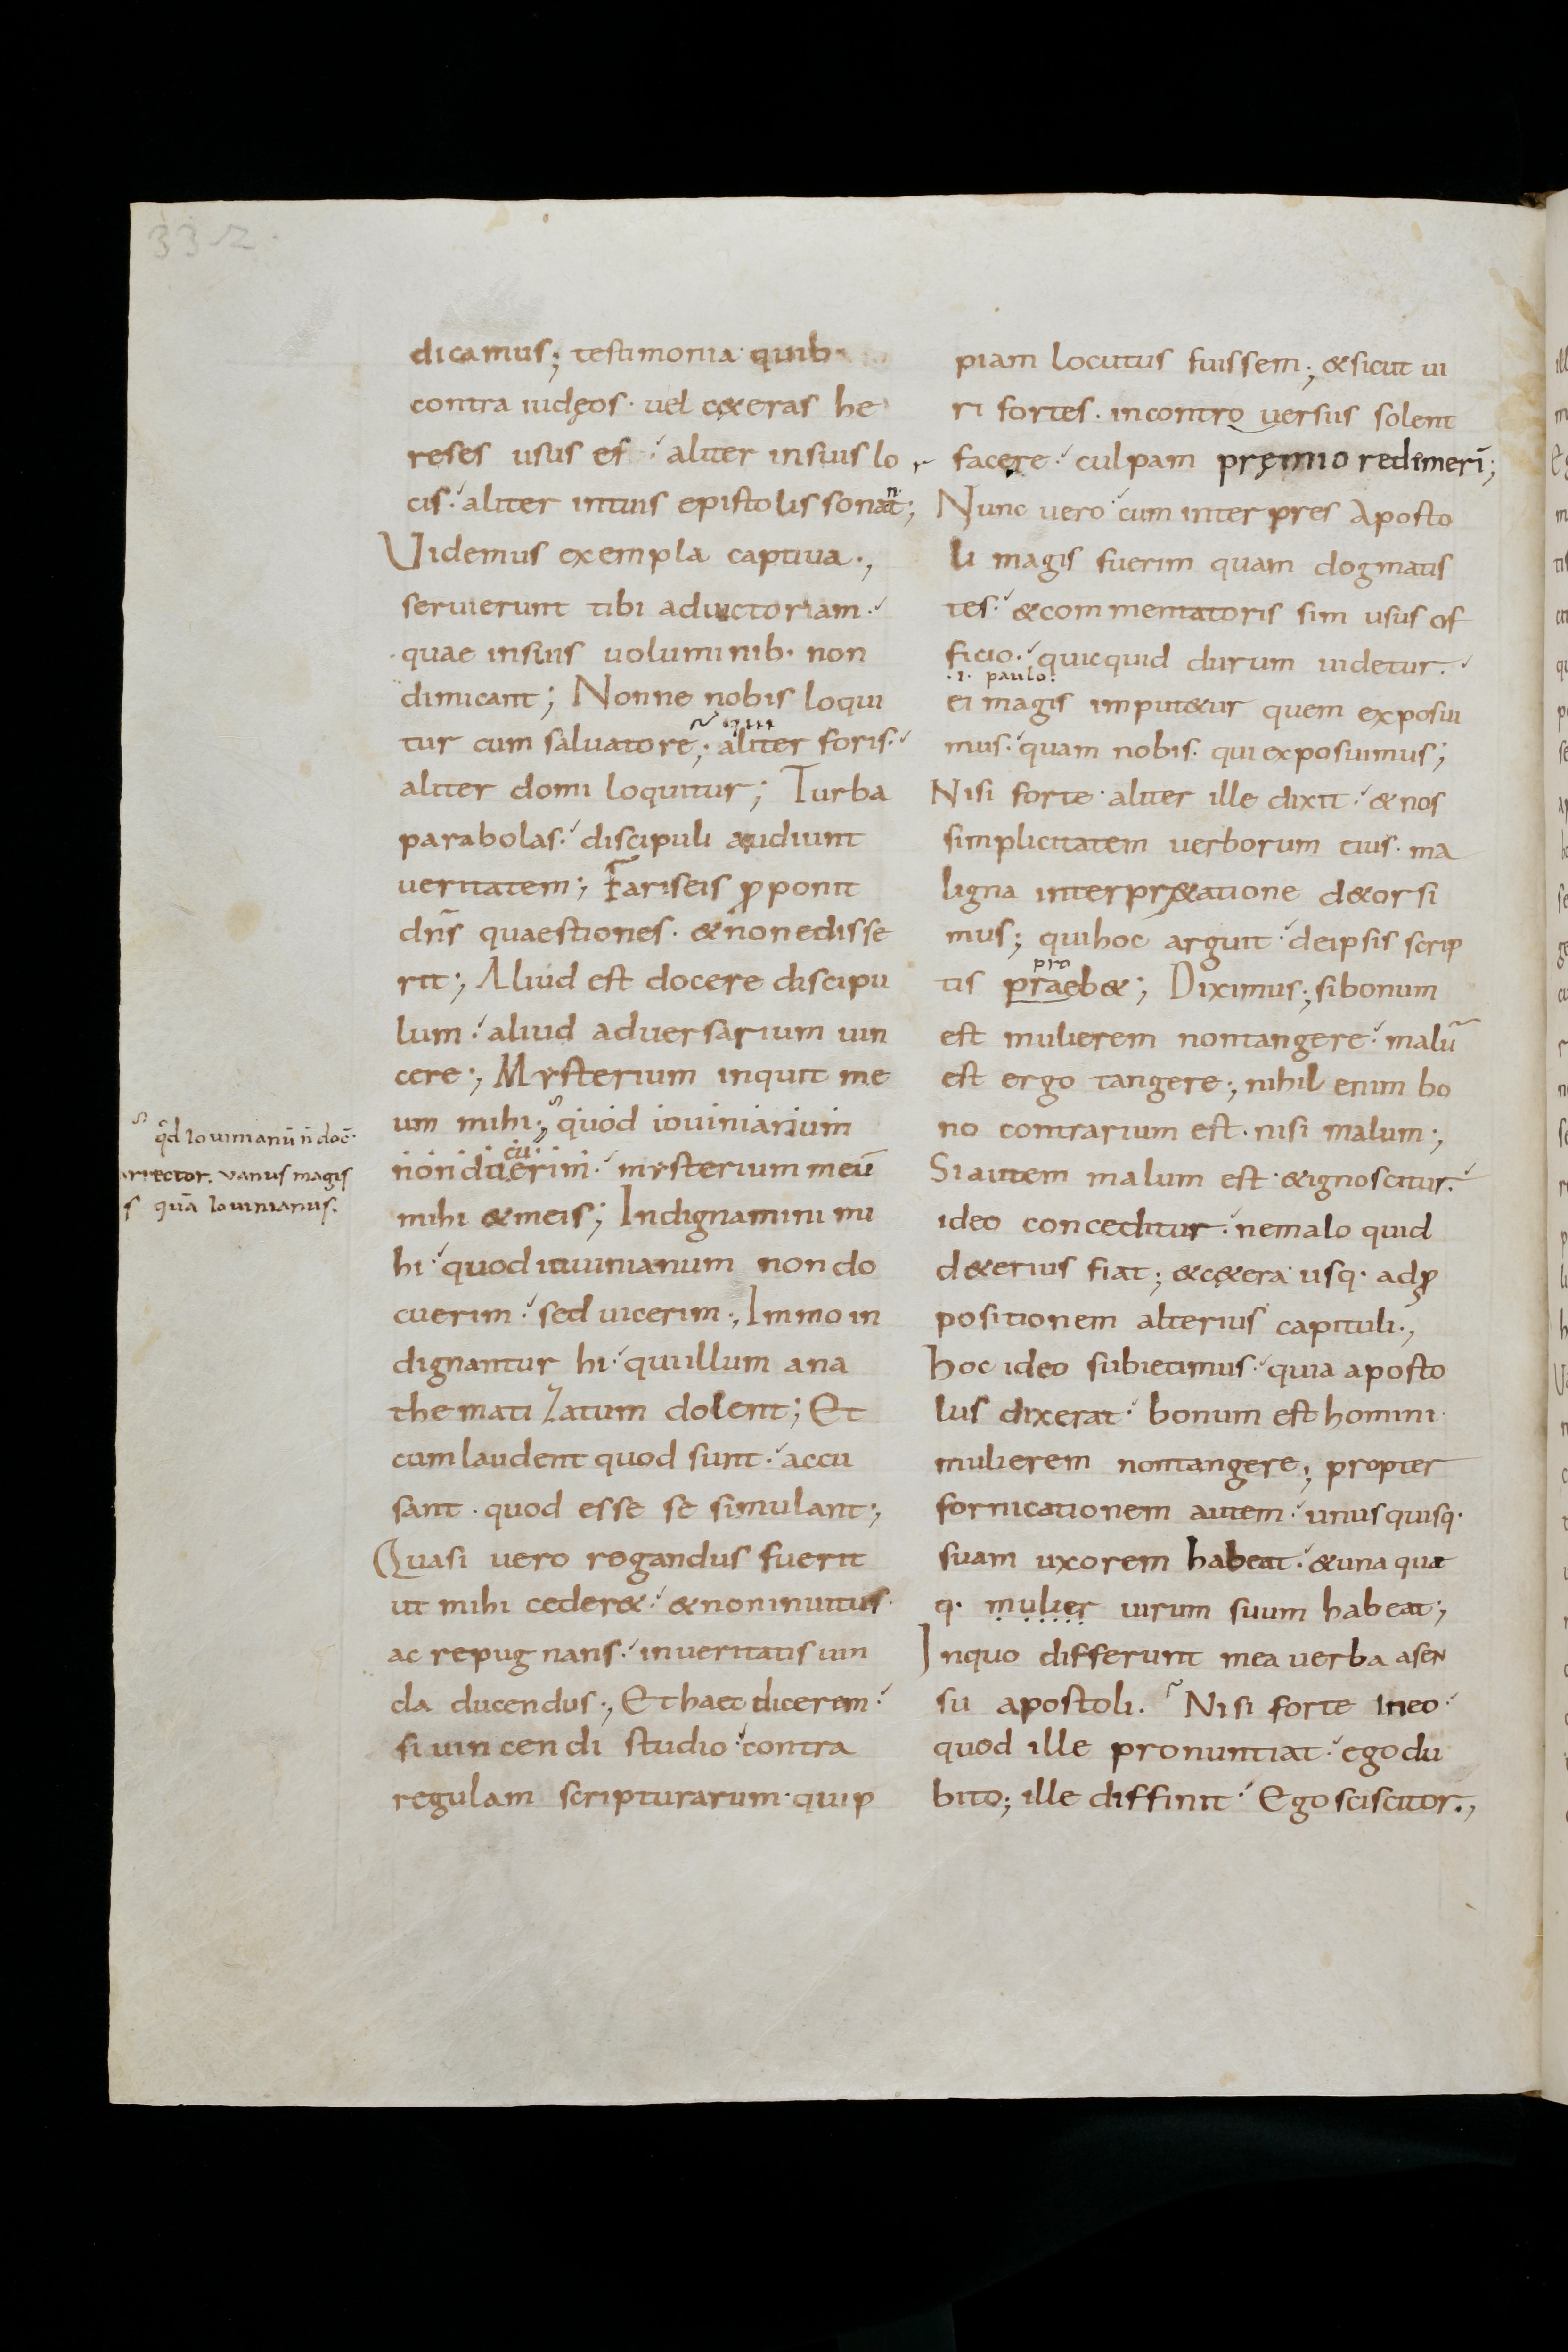 332.
dicamus; testimonia quib·
contra iudęos· uel cęteras he
reses usus es· aliter insuis lo
cis· aliter intuis epistolis sonant;
Uidemus exempla captiua·,
seruierunt tibi aduictoriam·
quae insuis uoluminib· non
dimicant; Nonne nobis loqui
qui
tur cum saluatore; aliter foris·
aliter domi loquitur; Turba
parabolas· discipuli audiunt
ueritatem; Fariseis ꝓponit
dn̄s quaestiones· &nonedisse
rit; Aliud est docere discipu
lum· aliud aduersarium uin
cere; Mysterium inquit me
um mihi; quod iouinianum
cu
non duerim· mysterium meū
mihi &meis; Indignamini mi
hi· quod iuuinianum non do
cuerim· sed uicerim·, Immo in
dignantur hi· quiillum ana
themati Zatum dolent; Et
cum laudent quod sunt· accu
sant· quod esse se simulant;
Quasi uero rogandus fuerit
ut mihi ceder&· &noninuitus·
ac repugnans· inueritatis uin
da ducendus·, Ethaec dicerem·
si uincendi studio· contra
regulam scripturarum· quip
q̄d Iouinianū n̄ doc̄·
rrector. vanus magis
s quā Iouinianus.
piam locutus fuissem; &sicut ui
ri fortes· incontro uersiis solent
facere· culpam pręmio redimerī;
Nunc uero· cum inter pres Aposto
li magis fuerim quam dogmatis
tes· &commentatoris sim usus of
ficio· quicquid durum uidetur·
·i· paulo·
ei magis imput&ur quem exposui
mus· quam nobis· qui exposuimus;
Nisi forte· aliter ille dixit· & nos
simplicitatem uerborum eius· ma
ligna interpr&atione d&orsi
mus; quihoc arguit· deipsis scrip
pro
tis praeb&; Diximus; sibonum
est mulierem nontangere· malū
est ergo tangere·, nihil enim bo
no contrarium est· nisi malum·,
Siautem malum est· &ignoscitur·
ideo conceditur· nemalo quid
d&erius fiat; &cę&era usq· adꝓ
positionem alterius capituli·,
hoc ideo subiecimus· quia aposto
lus dixerat· bonum est homini
mulierem nontangere; propter
fornicationem autem· unusquisq·
suam uxorem habeat· &una quae
q· mulier uirum suum habeat;
Inquo differunt mea uerba asen
su apostoli. Nisi forte Ineo·
quod ille pronuntiat· egodu
bito; ille diffinit· Ego sciscitor·,